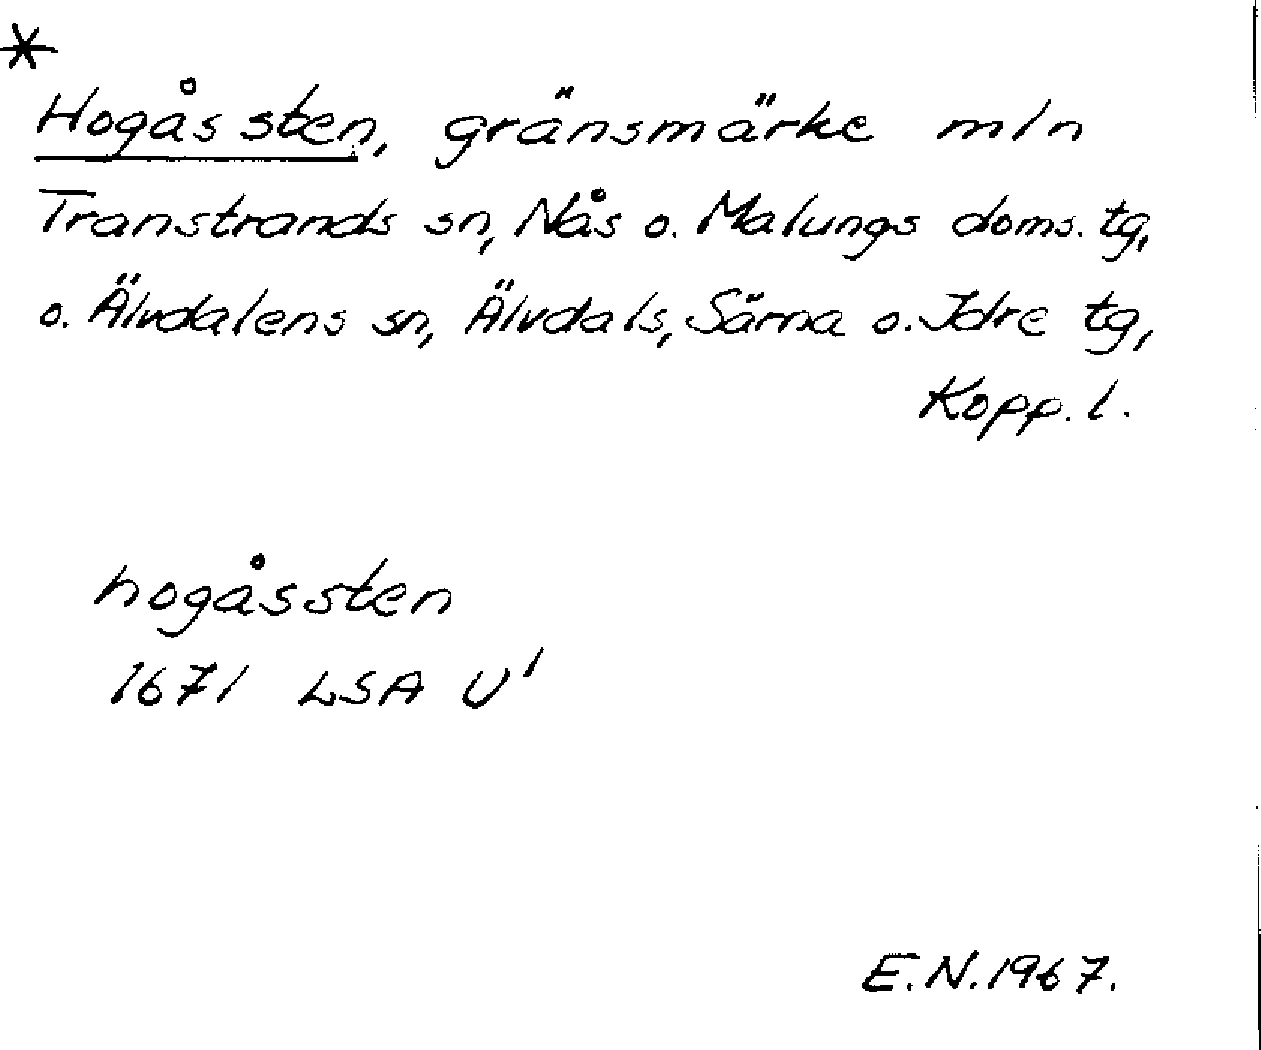 *
Hogåssten, gränsmärke mln
Transtrands sn, Nås o. Malungs doms. tg,
o. Älvdalens sn, Älvdals, Särna o. Idre tg,
Kopp. l.
hogåssten
1671 LSA U¹
E.N. 1967.